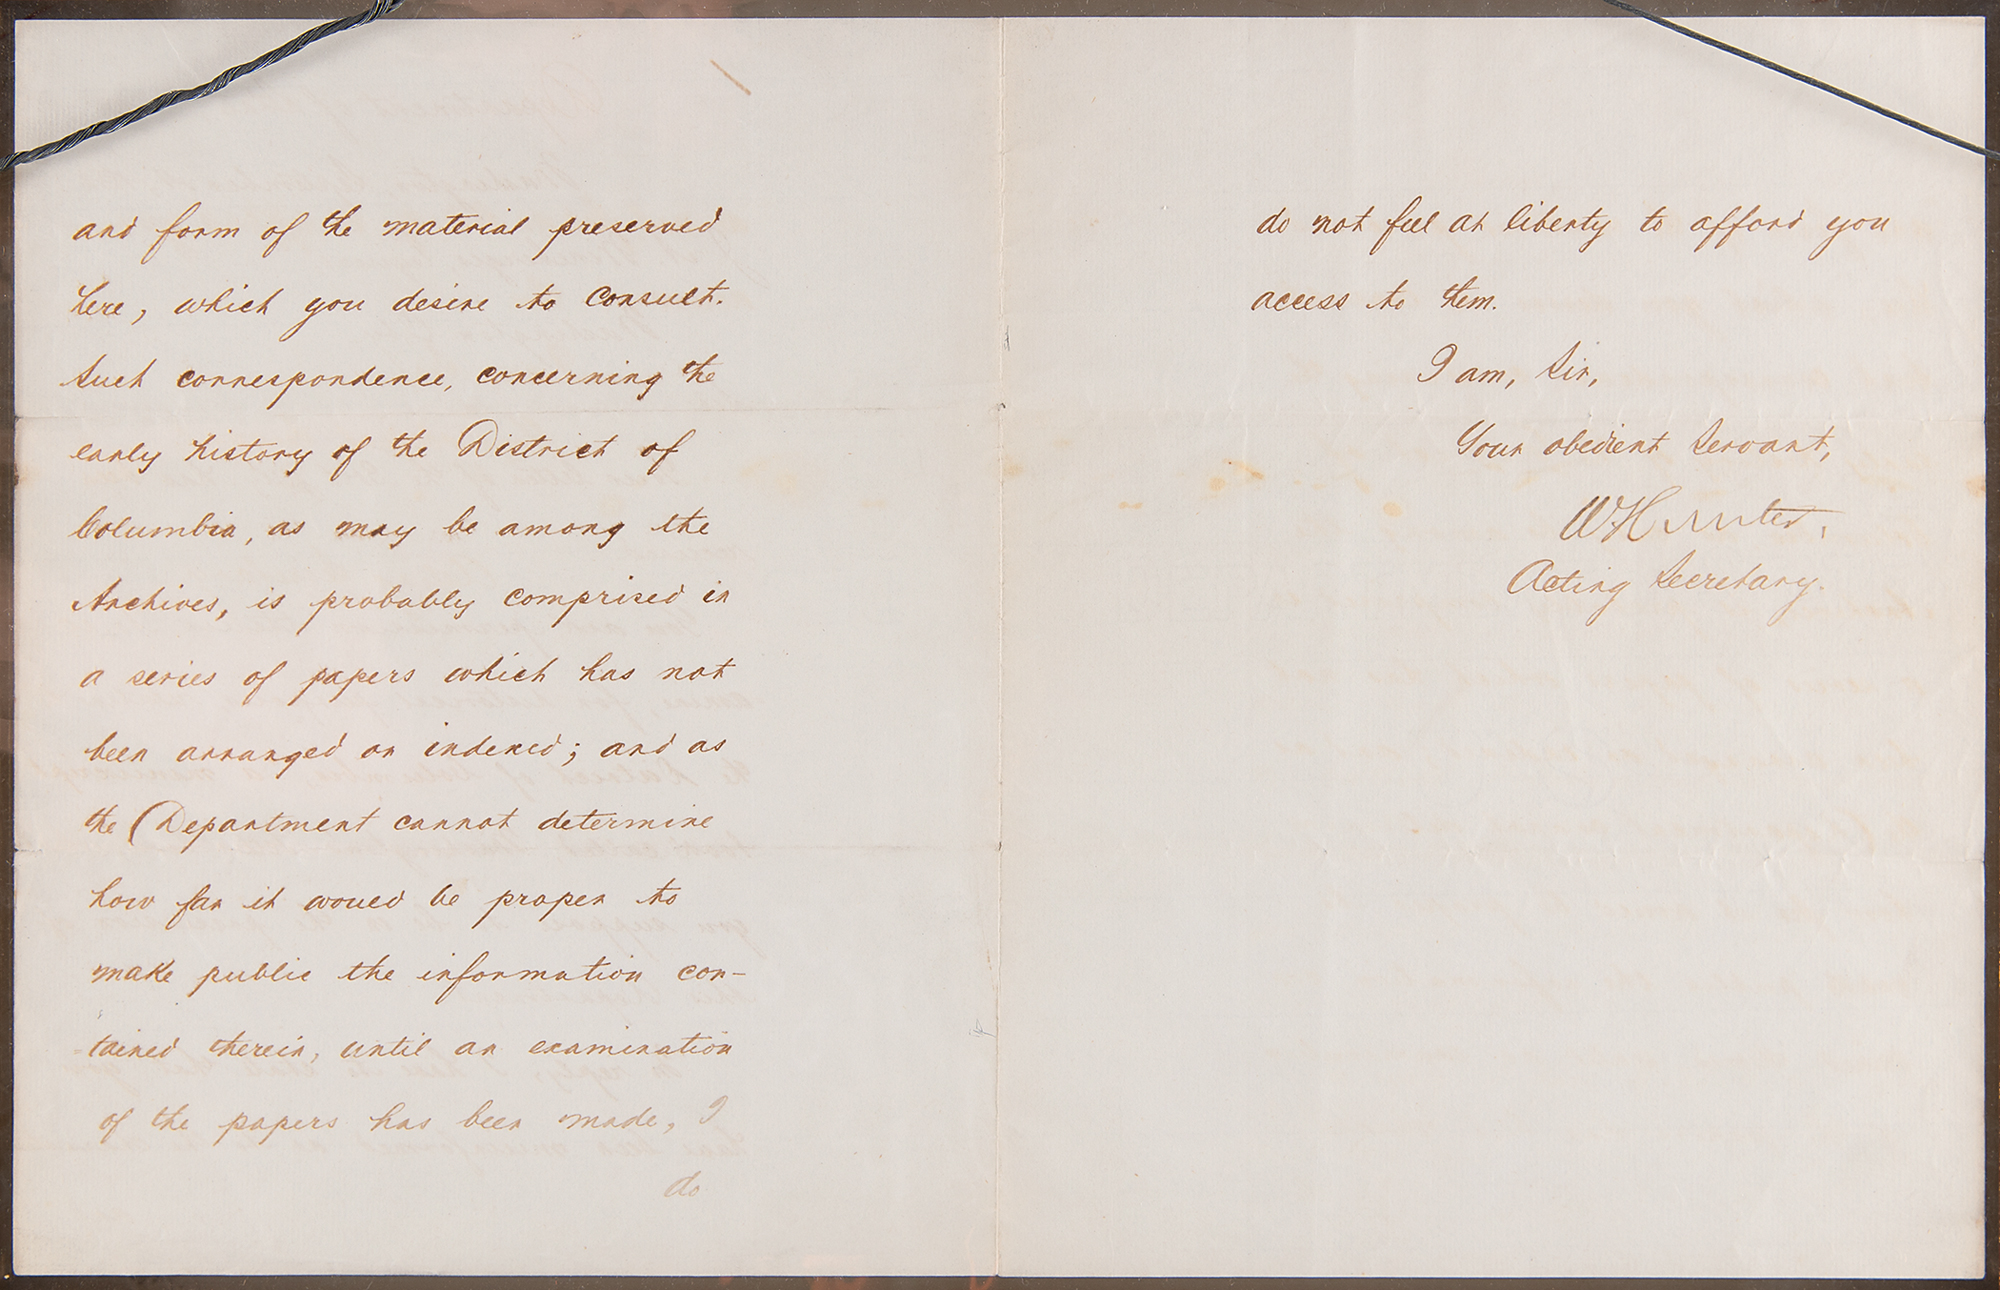 and form of the material preserved
here, which you desire to consult.
Such correspondence, concerning the
early history of the District of
Columbia, as may be among the
Archives, is probably comprised in
a series of papers which has not
been arranged or indexed; and as
the Department cannot determine
how far it would be proper to
make public the information con-
=tained therein, until an examination
of the papers has been made, I
do
do not feel at liberty to afford you
access to them.
I am, Sir,
Your obedient Servant,
W Hunter,
Acting Secretary.